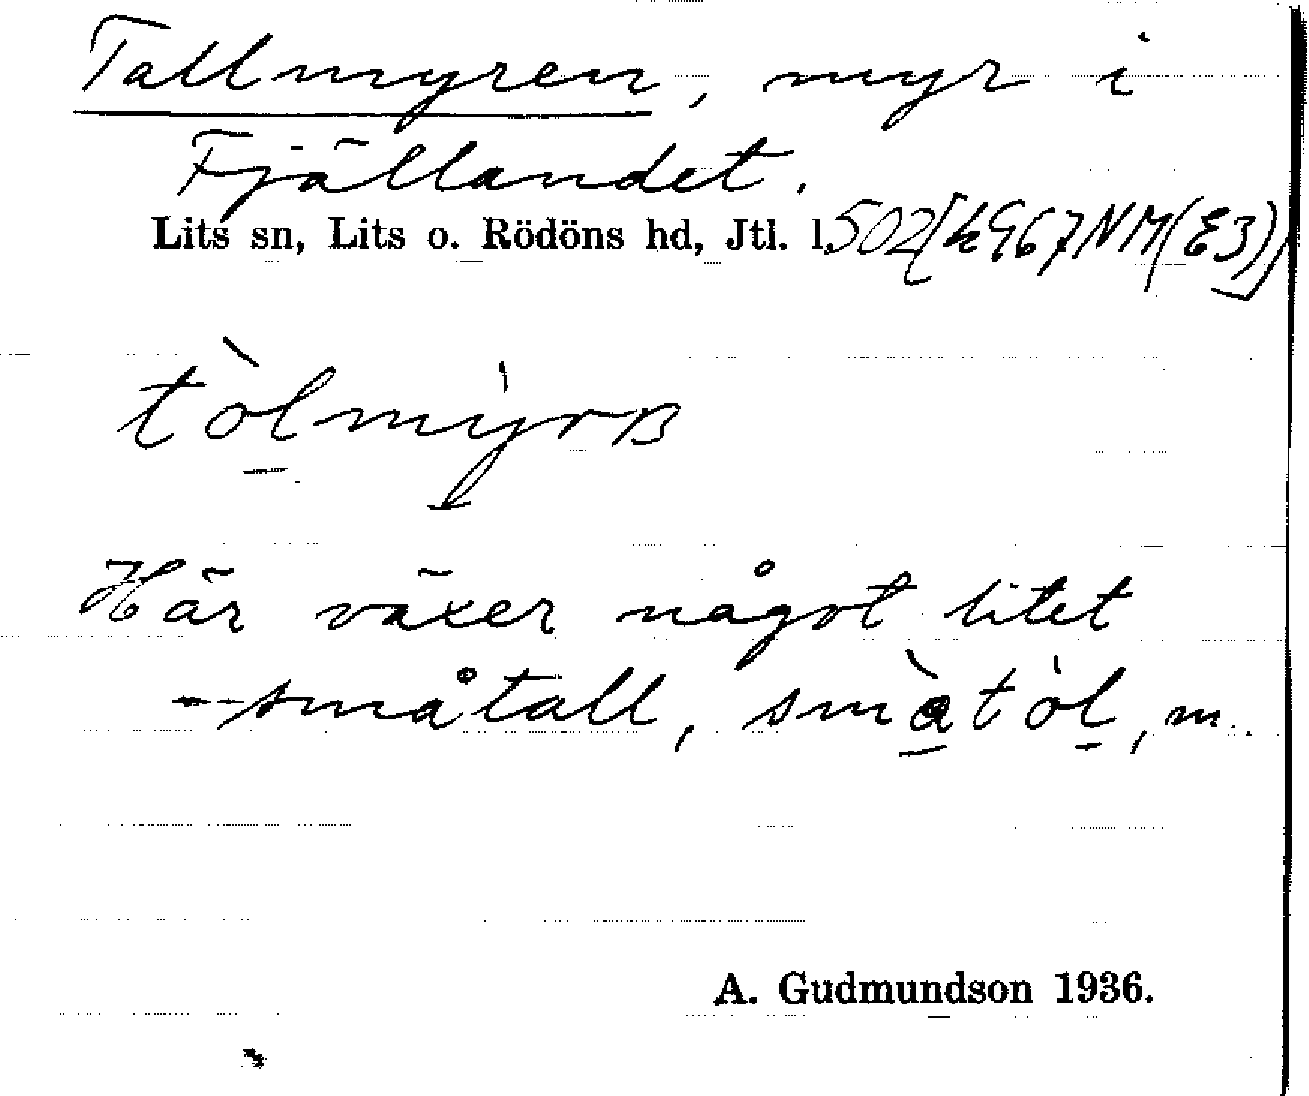 Tallmyren, myr i
Fjällandet.
Lits sn, Lits o. Rödöns hd, Jtl. l. 502[h967NM(E3)]
tòlmýrɞ
Här växer något litet
småtall, smàtòl, m.
A. Gudmundson 1936.